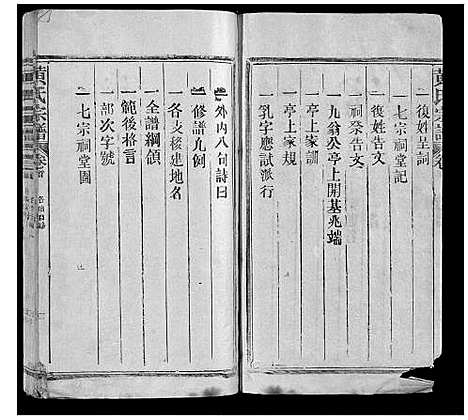 黄氏宗譜
一復姓呈詞
一復姓告文
一七宗祠堂記
一祠祭告文
一九翁公亭上開基兆端
一亭上家訓
一亭上家規
一乳字應試派行
一外內八句詩曰
一修譜凡例
一各支移建地名
一全譜綱領
一範後格言
一部次字號
一七宗祠堂圖
黄氏宗譜